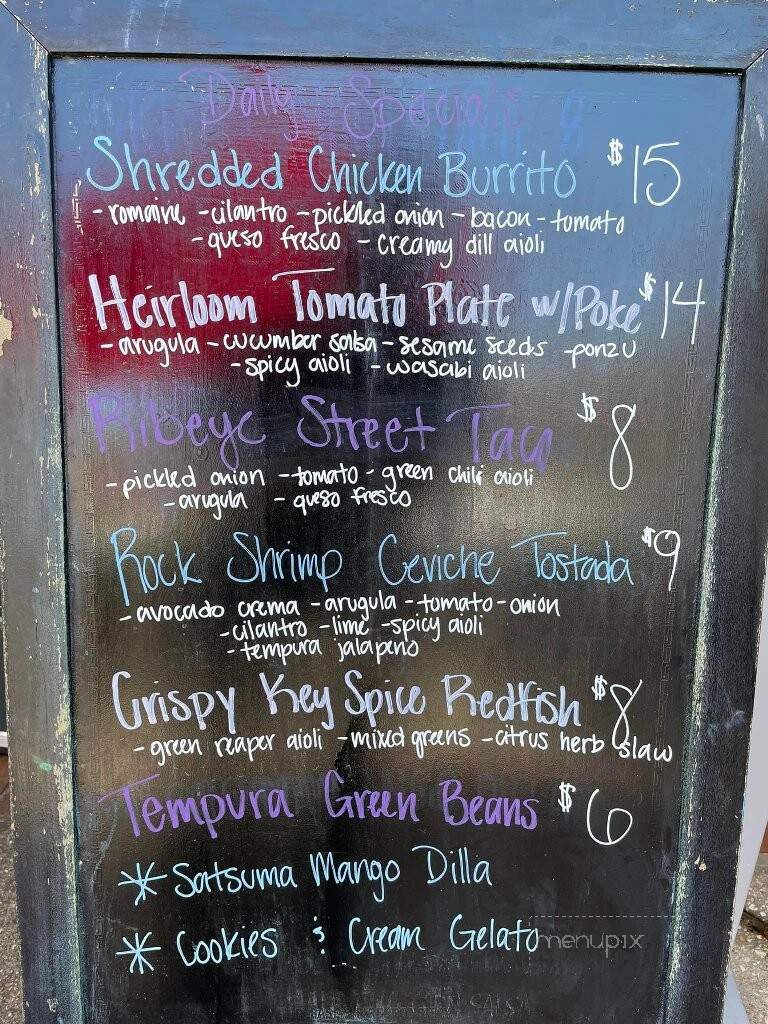 Daily Specials
Shredded Chicken Burrito $15
- romaine - cilantro - pickled onion - bacon - tomato
- queso fresco - creamy dill aioli
Heirloom Tomato Plate w/Poke $14
- arugula - cucumber salsa - sesame seeds - ponzu
- spicy aioli - wasabi aioli
Ribeye Street Taco $8
- pickled onion - tomato - green chili aioli
- arugula - queso fresco
Rock Shrimp Ceviche Tostada $9
- avocado crema - arugula - tomato - onion
- cilantro - lime - spicy aioli
- tempura jalapeno
Crispy Key Spice Redfish $8
- green reaper aioli - mixed greens - citrus herb slaw
Tempura Green Beans $6
* Satsuma Mango Dilla
* Cookies & Cream Gelato
menupix